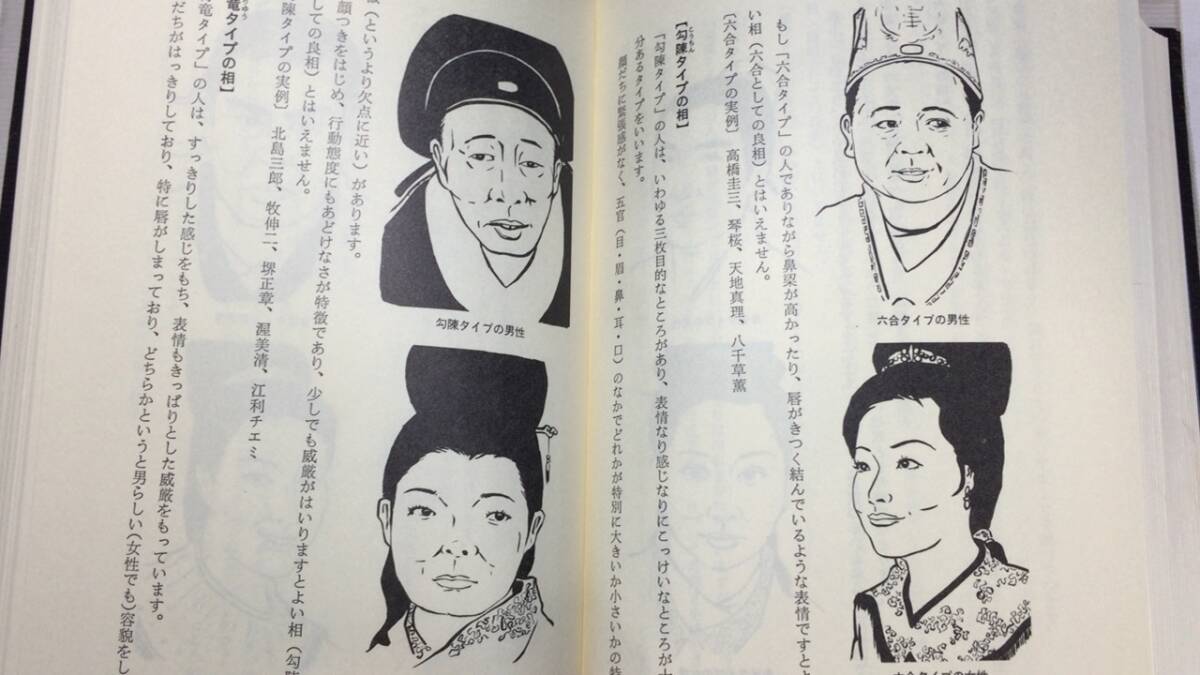 もし「六合タイプ」の人でありながら鼻梁が高かったり、唇がきつく結んでいるような表情ですと
い相（六合としての良相）とはいえません。
［六合タイプの実例］ 高橋圭三、琴桜、天地真理、八千草薫
【勾陳タイプの相】
こうちん
「勾陳タイプ」の人は、いわゆる三枚目的なところがあり、表情なり感じなりにこっけいなところが
分あるタイプをいいます。
顔だちに緊張感がなく、五官（目・眉・鼻・耳・口）のなかでどれかが特別に大きいか小さいかの特
六合タイプの男性
六合タイプの女性
（というより欠点に近い）があります。
顔つきをはじめ、行動態度にもあどけなさが特徴であり、少しでも威厳がはいりますとよい相（勾
しての良相）とはいえません。
陳タイプの実例］ 北島三郎、牧伸二、堺正章、渥美清、江利チエミ
竜タイプの相】
竜タイプ」の人は、すっきりした感じをもち、表情もきっぱりとした威厳をもっています。
だちがはっきりしており、特に唇がしまっており、どちらかというと男らしい（女性でも）容貌をし
勾陳タイプの男性